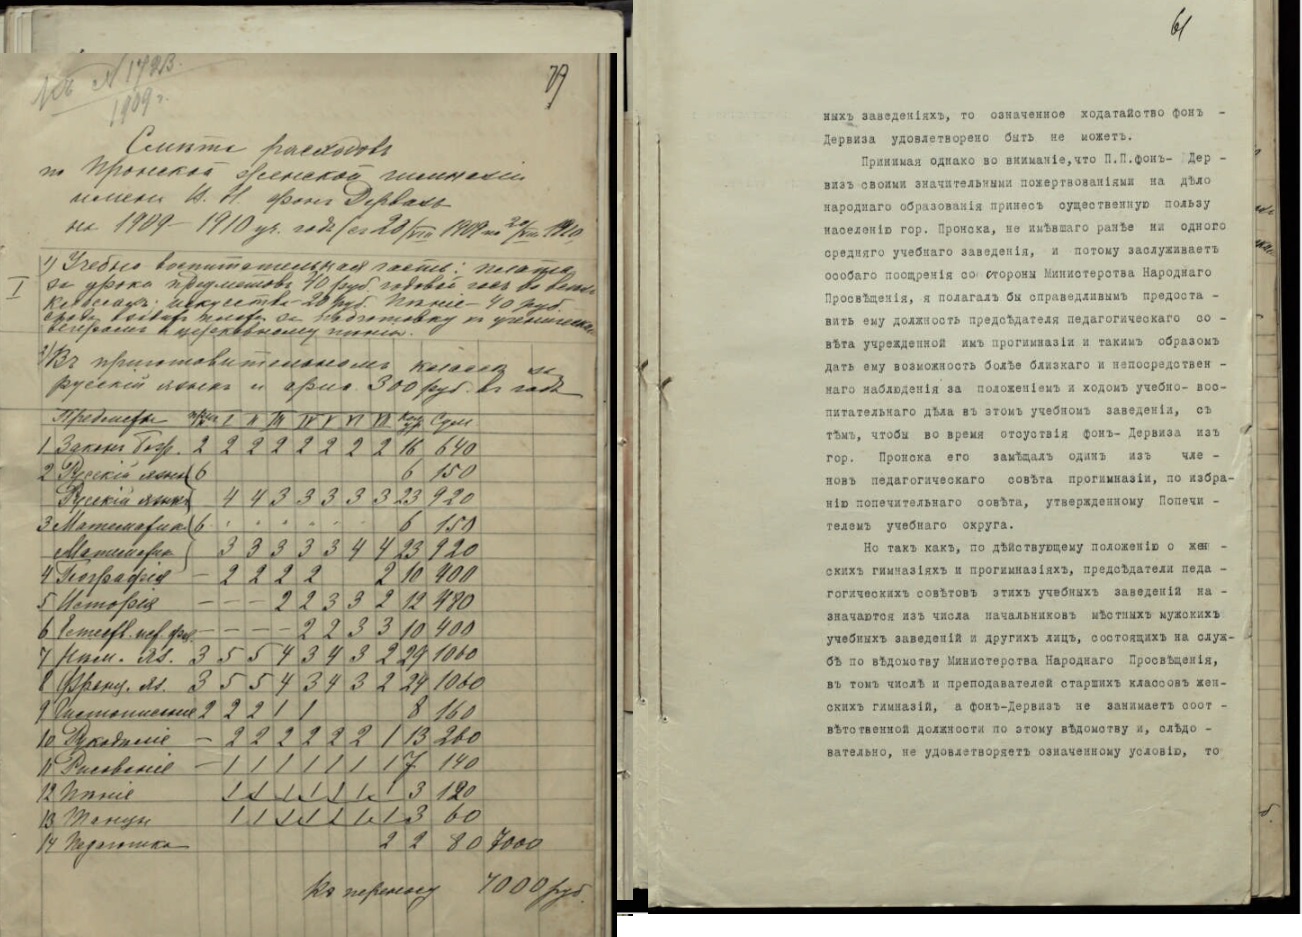 79
Къ № 1793.
1909 г.
Смѣта расходовъ
по Пронской женской гимназіи
имени П. П. фонъ Дервизъ
на 1909–1910 уч. годъ (съ 20/VIII 1909 по 20/VIII 1910)
I
1) Учебно воспитательная часть: плата
за уроки предметовъ 40 руб. годовой часъ во всехъ
классахъ; искусства 20 руб. Пѣніе – 40 руб.
за подготовку къ ученическимъ
вечерамъ и церковному пѣнію.
2) Въ приготовительномъ классѣ за
русскій языкъ и ариѳ. 300 руб. въ годъ
Предметы I II III IV V VI VII Сум.
1 Законъ Бож. 2 2 2 2 2 2 2 2 16 640
2 Русскій языкъ 6 6 150
Русскій языкъ 4 4 3 3 3 3 3 23 920
3 Математика 6 6 150
Математика 3 3 3 3 3 4 4 23 920
4 Географія – 2 2 2 2 2 10 400
5 Исторія – – – 2 2 3 3 2 12 480
6 Естеств. ист. физ. – – – – 2 2 3 3 10 400
7 Нѣм. яз. 3 5 5 4 3 4 3 2 29 1060
8 Франц. яз. 3 5 5 4 3 4 3 2 29 1060
9 Чистописаніе 2 2 2 1 1 8 160
10 Рукодѣліе – 2 2 2 2 2 2 1 13 260
11 Рисованіе – 1 1 1 1 1 1 1 7 140
12 Пѣніе 1 3 120
13 Танцы 1 1 1 3 60
14 Педагогика 2 2 80 7000
Къ переносу 7000 руб.
61
ныхъ заведеніяхъ, то означенное ходатайство фонъ -
Дервиза удовлетворено быть не можетъ.
Принимая однако во вниманіе,что П.П.фонъ- Дер -
визъ своими значительными пожертвованіями на дѣло
народнаго образованія принесъ существенную пользу
населенію гор. Пронска, не имѣвшаго ранѣе ни одного
средняго учебнаго заведенія, и потому заслуживаетъ
особаго поощренія со стороны Министерства Народнаго
Просвѣщенія, я полагалъ бы справедливымъ предоста -
вить ему должность предсѣдателя педагогическаго со -
вѣта учрежденной имъ прогимназіи и такимъ образомъ
дать ему возможность болѣе близкаго и непосредствен -
наго наблюденія за положеніемъ и ходомъ учебно- вос-
питательнаго дѣла въ этомъ учебномъ заведеніи, съ
тѣмъ, чтобы во время отсуствія фонъ- Дервиза изъ
гор. Пронска его замѣщалъ одинъ изъ чле -
новъ педагогическаго совѣта прогимназіи, по избра-
нію попечительнаго совѣта, утвержденному Попечи -
телемъ учебнаго округа.
Но такъ какъ, по дѣйствующему положенію о жен -
скихъ гимназіяхъ и прогимназіяхъ, предсѣдатели педа -
гогическихъ совѣтовъ этихъ учебныхъ заведеній на -
значаются изъ числа начальниковъ мѣстныхъ мужскихъ
учебныхъ заведеній и другихъ лицъ, состоящихъ на служ-
бѣ по вѣдомству Министерства Народнаго Просвѣщенія,
въ томъ числѣ и преподавателей старшихъ классовъ жен-
скихъ гимназій, а фонъ-Дервизъ не занимаетъ соот -
вѣтственной должности по этому вѣдомству и, слѣдо -
вательно, не удовлетворяетъ означенному условію, то